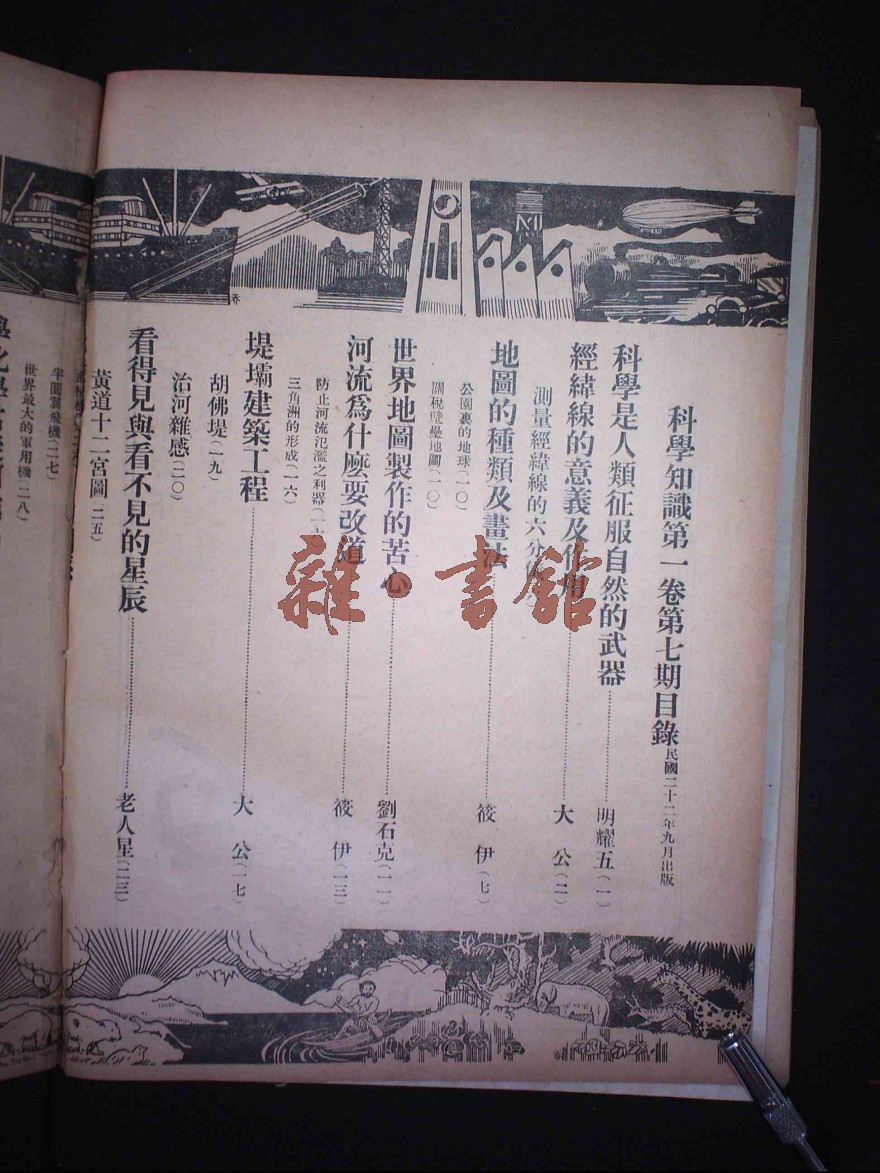 科學知識第一卷第七期目錄 民國二十二年九月出版
科學是人類征服自然的武器………明耀五(一)
經緯線的意義及作用………大 公(二)
測量經緯線的六分儀
地圖的種類及畫法………筱 伊(七)
公園裏的地球(一〇)
關稅壁壘地圖(一〇)
世界地圖製作的苦心………劉石克(一一)
河流爲什麼要改道………筱 伊(一三)
防止河流氾濫之利器
三角洲的形成(一六)
堤壩建築工程………大 公(一七)
胡佛堤(一九)
治河雜感(二〇)
看得見與看不見的星辰………老人星(二三)
黃道十二宮圖(二五)
半圓翼飛機(二七)
世界最大的軍用機(二八)
雜·書館